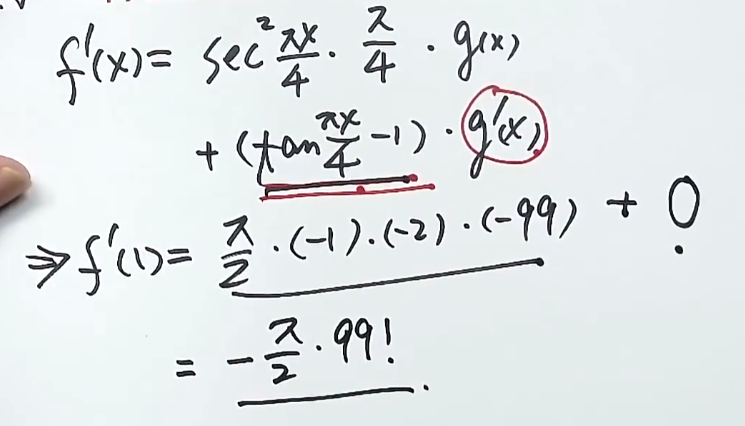 f'(x) = sec² πx/4 · π/4 · g(x)
+ (tan πx/4 - 1) · g'(x)
⇒ f'(1) = π/2 · (-1) · (-2) · (-99) + 0
= - π/2 · 99! .